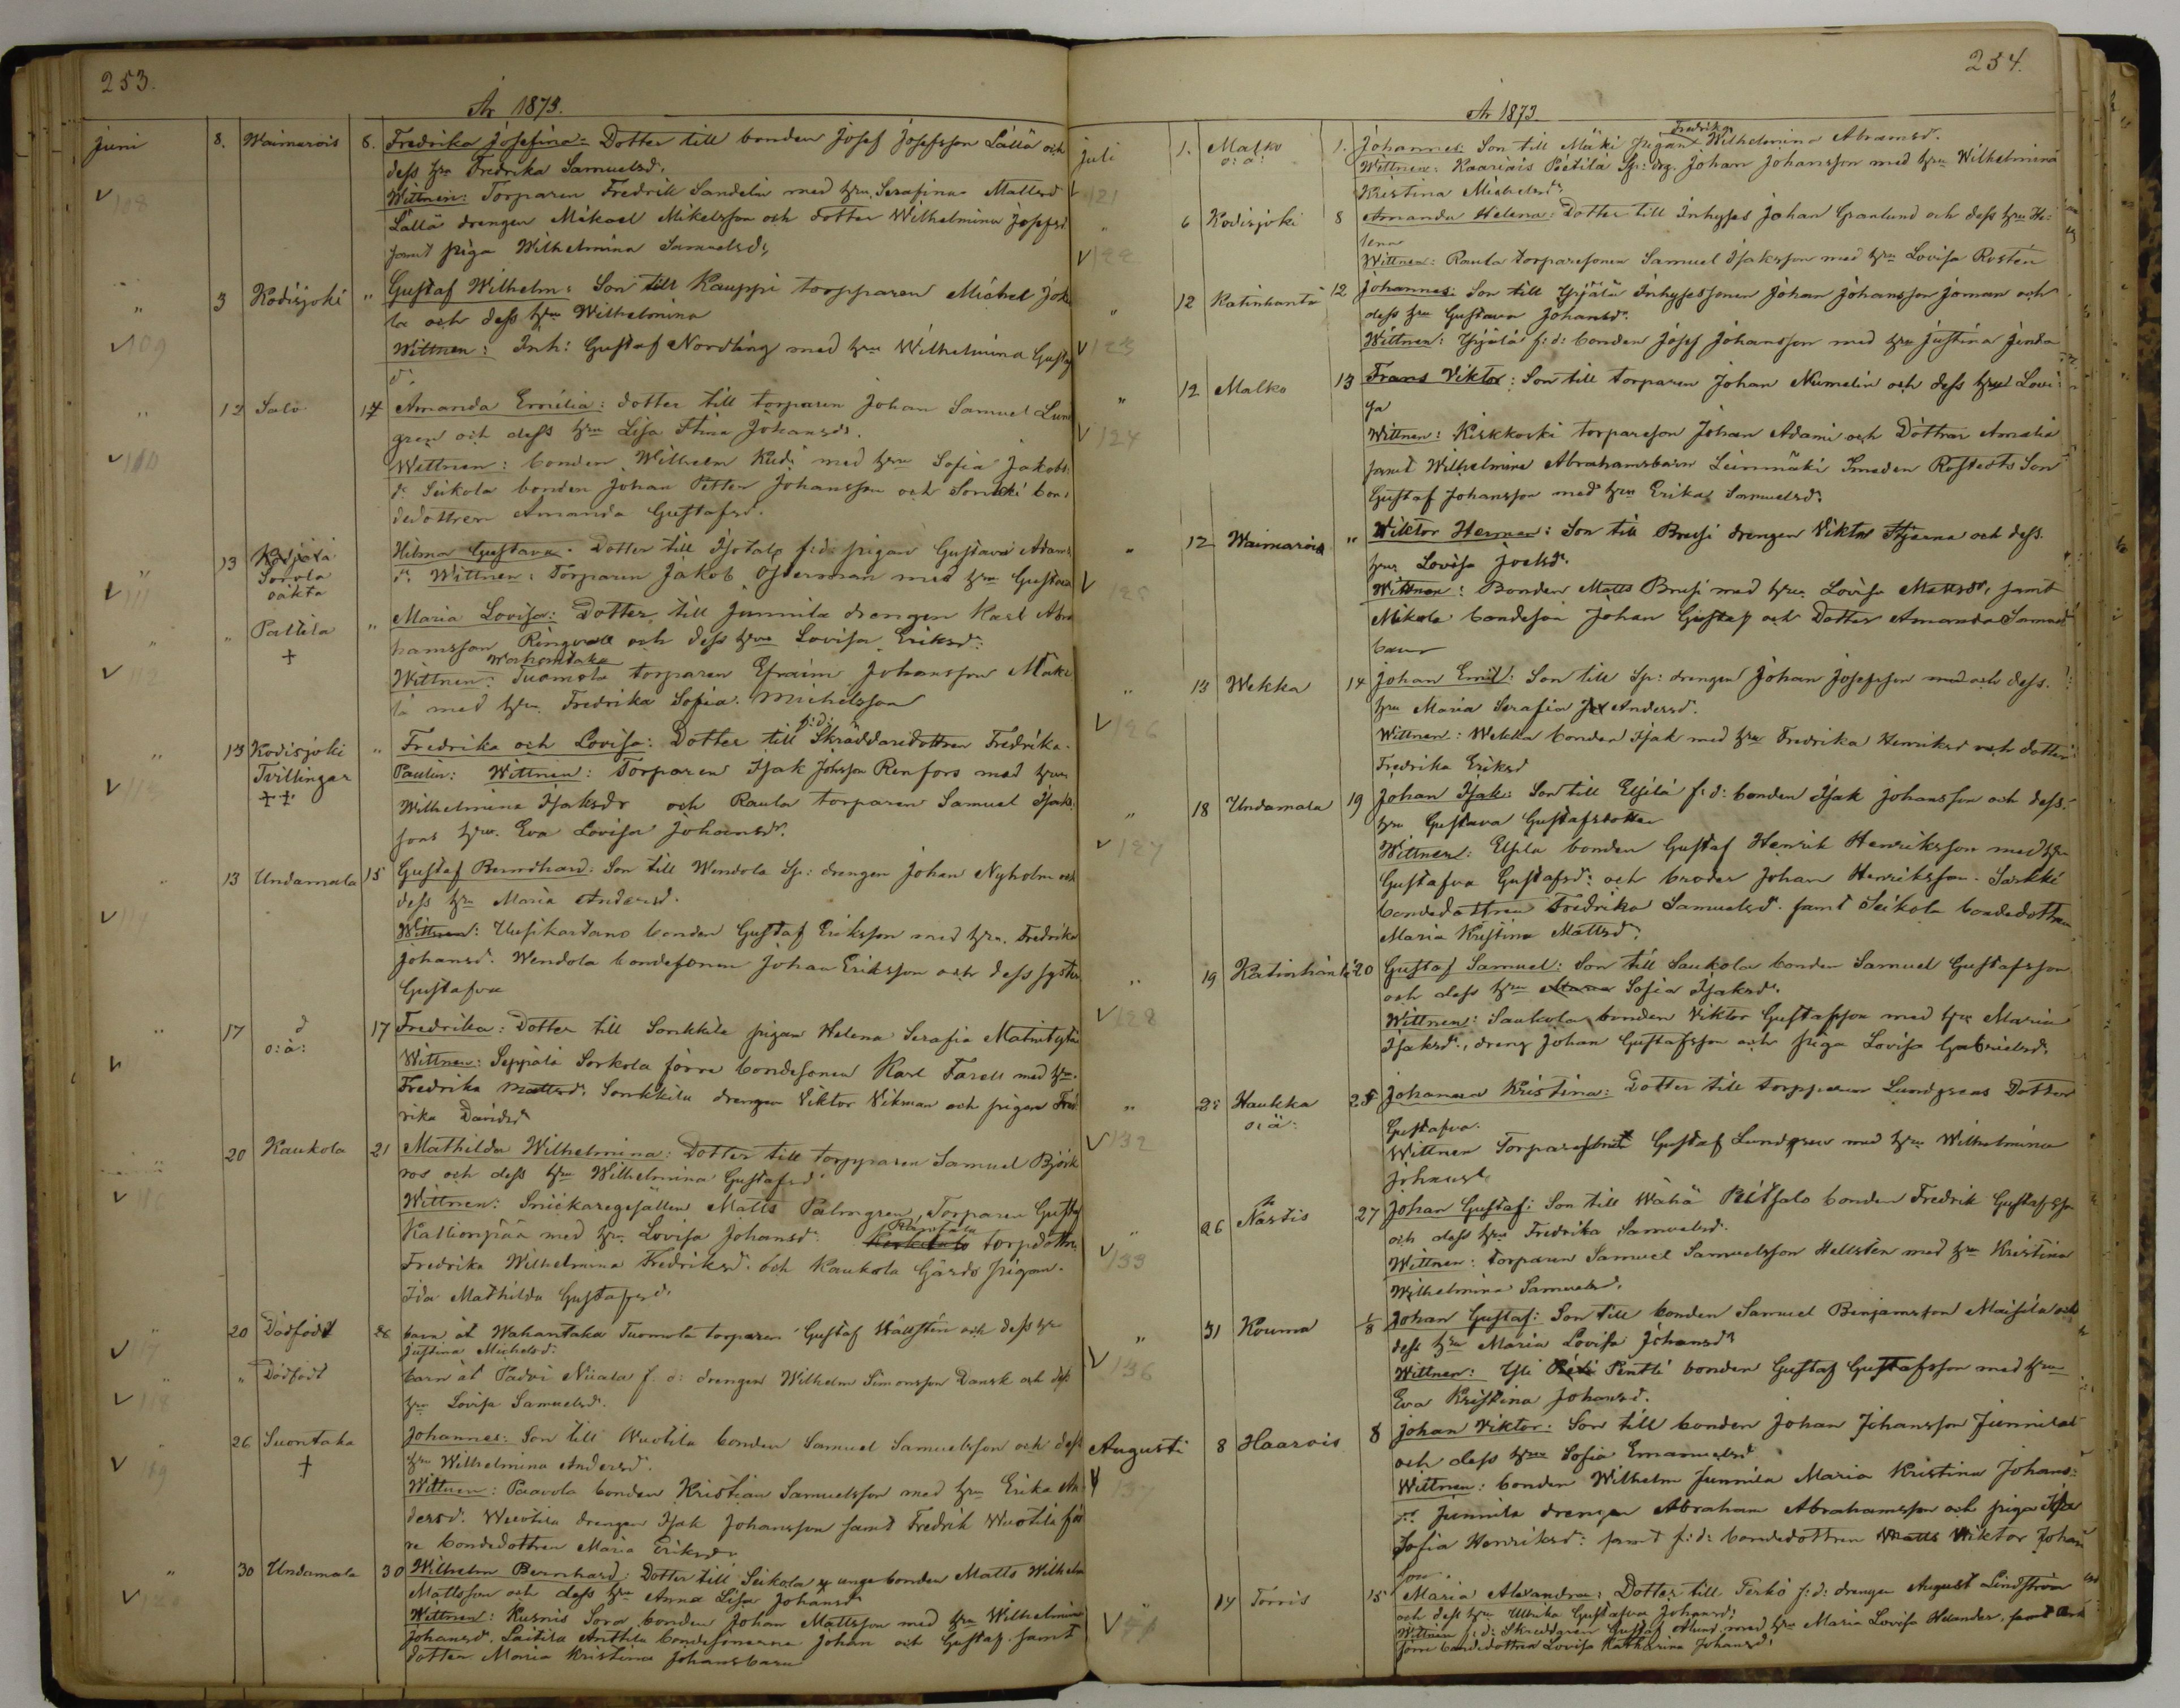 253.
År 1873.
juni 8. Waimarois 8. Fredrika Josefina: Dotter till bonden Josef Josefsson Lällä och
dess hru Fredrika Samuelsd.
108 Wittnen: Torparen Fredrik Sandelin med hru Serafina Mattsd
Lällä drengen Mikael Mikelsson och dotter Wilhelmina Josefsd
samt piga Wilhelmina Samuelsd:
" 3 Kodisjoki " Gustaf Wilhelm: Son till Kauppi torpparen Michel
och dess hru Wilhelmina
109 Wittnen: Inh: Gustaf Nordling med hru Wilhelmina Gustaf
d:
" 12 Salo 17 Amanda Emilia: dotter till torparen Johan Samuel Lund
gren och dess hru Lisa Stina Johansd.
110 Wittnen: bonden Wilhelm med hru Sofia Jakobs
d: Seikola bonden Johan Petter Johansson och bon
dedottren Amanda Gustafsd.
" 13 Sorola oäkta Hilma Gustava: Dotter till f:d: pigan Gustava Adams
111 d: Wittnen: Torparen Jakob Österman med hru Gustava
" " Paltila " Maria Lovisa: Dotter till Junnila drengen Karl Abra
+ hamsson Ringvall och dess hru Lovisa Eriksd:
Wahantaka
112 Wittnen: Tuomola torparen Efraim Johansson Mäke
lä med hru Fredrika Sofia Michelsson
f:d:
" 13 Kodisjoki " Fredrika och Lovisa: Dotter till Skräddaredottren Fredrika
Tvillingar Paulin: Wittnen: Torparen Isak Johsson Renfors med hru
++ Wilhelmina Isaksdr och Raula torparen Samuel Isaks
sons hru Eva Lovisa Johansd.
13 Undamala 15 Gustaf Bernhard: Son till Wendola Sp: drengen Johan Nyholm och
dess hru Maria Andersd.
114 Wittnen: Uusikartano bonden Gustaf Eriksson med hru Fredrika
Johansd. Wendola bondesonen Johan Eriksson och dess syster
Gustafva
" 17 d 17 Fredrika: Dotter till Sonkkila pigan Helena Serafia
o:ä: Wittnen: Seppälä Sorkola förre bondesonen Karl Farell med hru
Fredrika Mattsd: Sonkkila drengen Viktor Vikman och pigan Fred
rika Davidsd
" 20 Kaukola 21 Mathilda Wilhelmina: Dotter till torpparen Samuel Björk
ros och dess hru Wilhelmina Gustafsd.
116 Wittnen: Snickaregesällen Matts Palmgren, Torparen Gustaf
Kallionpää med hru Lovisa Johansd. torpdottren
Fredrika Wilhelmina Fredriksd. och Kaukola Gårds pigan
Ida Mathilda Gustafsd.
" 20 Dödfödt 28 barn åt Wahantaka Tuomola torparen Gustaf Hällsten och dess hru
117 Justina Michelsd:
" " Dödfödt barn åt Padri Niuala f. d: drengen Wilhelm Simonsson Dansk och dess
118 hru Lovisa Samuelsd.
" 26 Suontaka Johannes: Son till Wuotila bonden Samuel Samuelsson och dess
+ hru Wilhelmina Andersd.
119 Wittnen: Paavola bonden Kristian Samuelsson med hru Erika An
dersd. Wuotila drengen Isak Johansson samt Fredrik Wuotila för
re bondedottren Maria Eriksdr
" 30 Undamala 30 Wilhelm Bernhard: Dotter till Seikola unge bonden Matts Wilhelm
Mattsson och dess hru Anna Lisa Johansd
120 Wittnen: Kusnis Sora bonden Johan Mattsson med hru Wilhelmina
Johansd. Laitila Anttila bondesonerna Johan och Gustaf samt
dotter Maria Kristina Johansbarn
254.
År 1873
Fredrika
juli 1. Malko 1. Johannes: Son till Mäki Pigan Wilhelmina Abramsd.
o:ä: Wittnen: Kaariais Pietilä Sp: drg. Johan Johansson med hru Wilhelmina
121 Kristina Michelsd.
" 6 Kodisjoki 8 Amanda Helena: Dotter till Inhyses Johan Granlund och dess hru He:
lena
122 Wittnen: Raula torparesonen Samuel Isaksson med hru Lovisa Rostén
" 12 Katinhanta 12 Johannes: Son till Yrjälä Inhysessonen Johan Johansson Joman och
dess hru Gustava Johansd.
123 Wittnen: Yrjälä f:d: bonden Josef Johansson med hru Justina
" 12 Malko 13 Frans Viktor: Son till torparen Johan Numelin och dess hru Lovi:
sa
124 Wittnen: Kirkkoski torpareson Johan Adami och Döttrar Amalia
samt Wilhelmina Abrahamsbarn Leinmäki Smeden Rostedts Son
Gustaf Johansson med hru Erika Samuelsd.
" 12 Waimarois " Wiktor Herman: Son till Brusi drengen Viktor Stjerna och dess
hru Lovisa
125 Wittnen: Bonden Matts Brusi med hru Lovisa Mattsdr, samt
Mikola bondeson Johan Gustaf och Dotter Amanda Samuels
barn
" 13 Wekka 14 Johan Emil: Son till Sp: drengen Johan Josefsson med och dess
hru Maria Serafia Andersd.
126 Wittnen: Wekka bonden Isak med hru Fredrika Henriksd och dotter
Fredrika Eriksd
" 18 Undamala 19 Johan Isak: Son till Elsilä f:d: bonden Isak Johansson och dess
hru Gustava Gustafsdotter
127 Wittnen: Elsila bonden Gustaf Henrik Henriksson med hru
Gustafva Gustafsd: och broder Johan Henriksson. Sarkki
bondedottren Fredrika Samuelsd. samt Seikola bondedottren
Maria Kristina Mattsd.
" 19 Katinhänta 20 Gustaf Samuel: Son till Saukola bonden Samuel Gustafsson
och dess hru Sofia Isaksd.
128 Wittnen: Saukola bonden Viktor Gustafsson med hru Maria
Isaksdr., dreng Johan Gustafsson och piga Lovisa Gabrielsd.
" Haukka Johanna Kristina: Dotter till torpparen Lundgrens Dotter
o:ä: Gustafva.
132 Wittnen Gustaf Lundgren med hru Wilhelmina
Johansd.
" 26 Nästis 27 Johan Gustaf: Son till Wähä Peltsalo bonden Fredrik Gustafsson
och dess hru Fredrika Samuelsd.
133 Wittnen: torparen Samuel Samuelsson Hellsten med hru Kristina
Wilhelmina Samuelsd.
" 31 Kouma 1/8 Johan Gustaf: Son till bonden Samuel Benjamsson Maisila och
dess hru Maria Lovisa Johansdr
136 Wittnen: Yli Pentti bonden Gustaf Gustafsson med hru
Eva Kristina Johansd.
Augusti 8 Haarois 8 Johan Viktor: Son till bonden Johan Johansson Junnila
och dess hru Sofia Emanuelsd
137 Wittnen: bonden Wilhelm Junnila Maria Kristina Johans:
d: Junnila drengen Abraham Abrahamsson och piga
Sofia Henriksd: samt f:d: bondedottren Matts Wiktor Johan
son.
" 14 Torris 15 Maria Alexandra: Dotter till Terho f:d: drengen August Lindström
och dess hru Ulrika Gustafva Johansd:
Wittnen f:d: Gustaf med hru Maria Lovisa Helander, samt
förre bondedottren Lovisa Katharina Johansd.